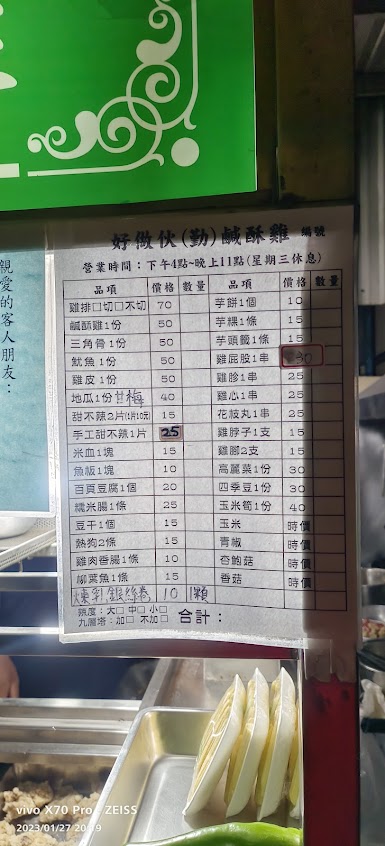 好做伙(勤)鹹酥雞 編號
營業時間：下午4點~晚上11點(星期三休息)
品項 價格 數量 品項 價格 數量
雞排□切□不切 70 芋餅1個 10
鹹酥雞1份 50 芋粿1條 15
三角骨1份 50 芋頭籤1條 15
魷魚1份 50 雞屁股1串 30
雞皮1份 50 雞胗1串 25
地瓜1份 甘梅 40 雞心1串 25
甜不辣2片(1片10元) 15 花枝丸1串 25
手工甜不辣1片 25 雞脖子1支 15
米血1塊 15 雞腳2支 15
魚板1塊 10 高麗菜1份 30
百頁豆腐1個 20 四季豆1份 30
糯米腸1條 25 玉米筍1份 40
豆干1個 15 玉米 時價
熱狗2條 15 青椒 時價
雞肉香腸1條 10 杏鮑菇 時價
柳葉魚1條 15 香菇 時價
煉乳銀絲卷 10 1顆
辣度：大□ 中□ 小□
九層塔：加□ 不加□ 合計：
親愛的客人朋友：
vivo X70 Pro ZEISS
2023/01/27 20:19